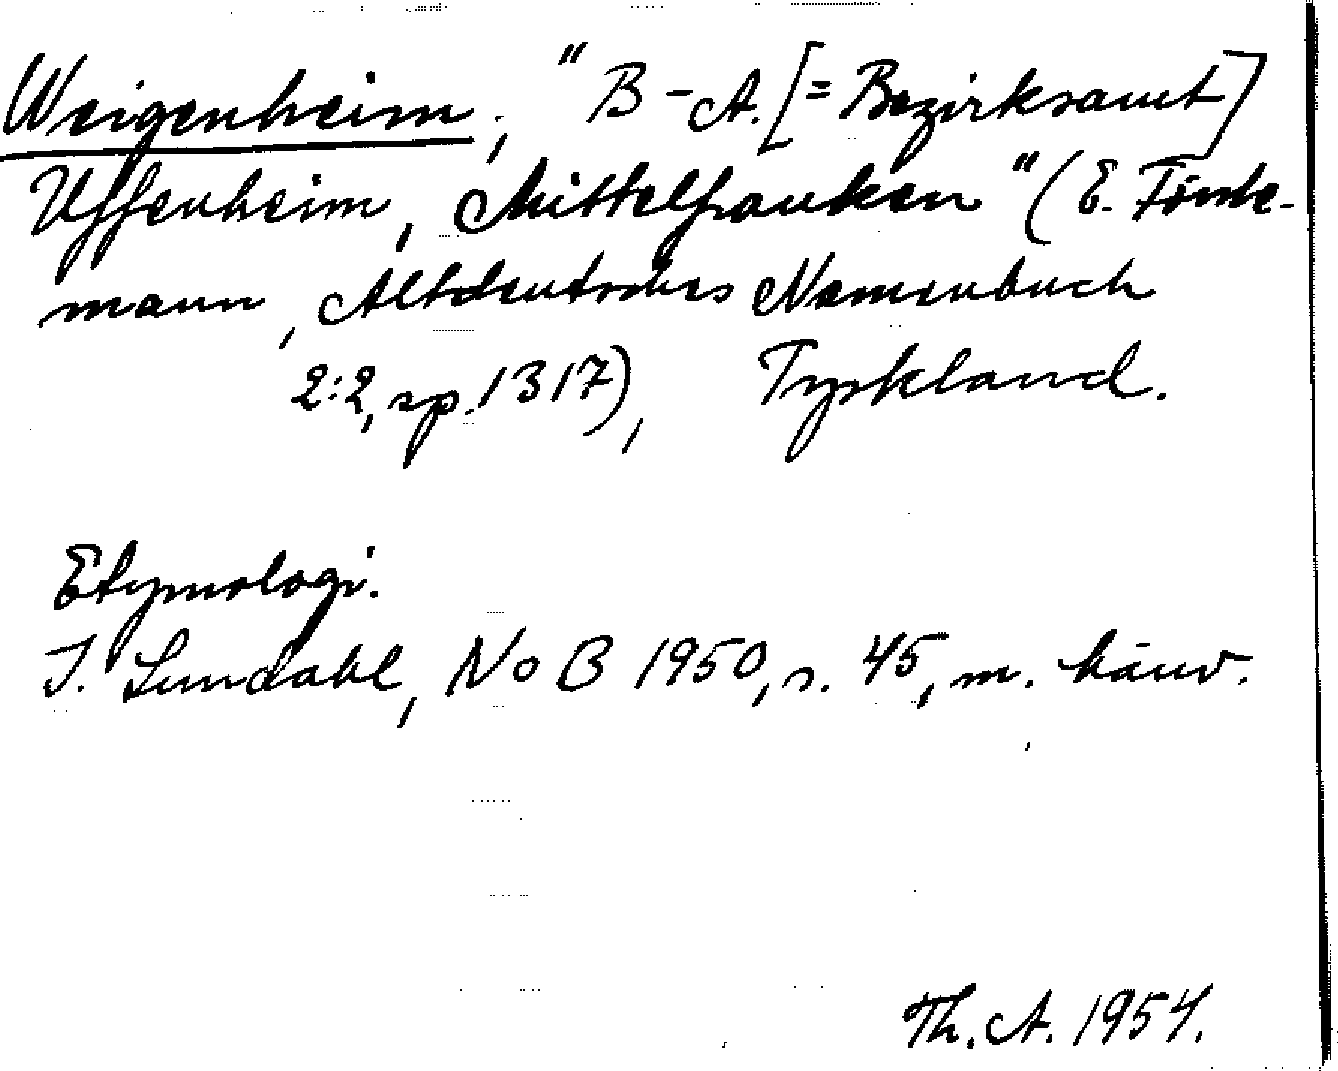 Weigenheim, "B-A. [= Bezirksamt]
Uffenheim, Mittelfranken" (E. Förste-
mann, Altdeutsches Namenbuch
2:2, sp. 1317), Tyskland.
Etymologi.
I. Lundahl, NoB 1950, s. 45, m. hänv.
Th. A. 1954.